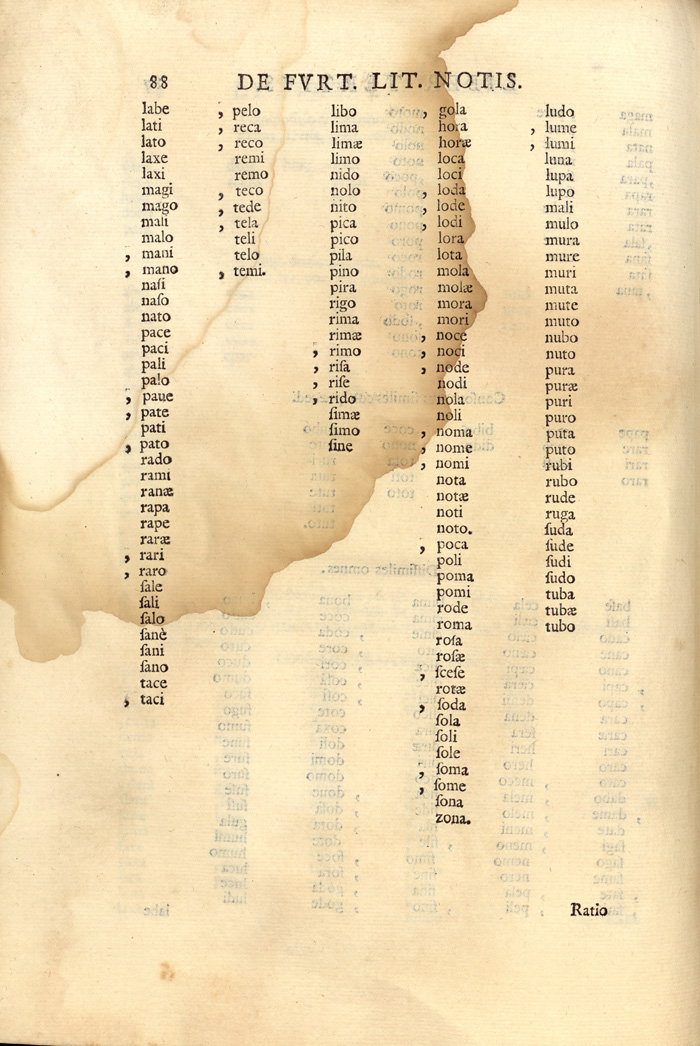 88 DE FVRT. LIT. NOTIS.
labe
lati
lato
laxe
laxi
magi
mago
mali
malo
, mani
, mano
naſi
naſo
nato
pace
paci
pali
palo
, paue
, pate
pati
, pato
rado
rami
ranæ
rapa
rape
raræ
, rari
, raro
ſale
ſali
ſalo
ſanè
ſani
ſano
tace
, taci
, pelo
, reca
, reco
remi
remo
, teco
, tede
, tela
teli
telo
, temi.
libo
lima
limæ
limo
nido
nolo
nito
pica
pico
pila
pino
pira
rigo
rima
rimæ
, rimo
, riſa
, riſe
, rido
ſimæ
ſimo
ſine
, gola
hora
horæ
loca
loci
, loda
, lode
, lodi
lora
lota
mola
molæ
mora
mori
, noce
, noci
, node
nodi
nola
noli
, noma
, nome
, nomi
nota
notæ
noti
noto.
, poca
poli
poma
pomi
rode
roma
roſa
roſæ
, ſceſe
rotæ
, ſoda
ſola
ſoli
ſole
, ſoma
, ſome
ſona
zona.
ludo
, lume
, lumi
luna
lupa
lupo
mali
mulo
mura
mure
muri
muta
mute
muto
nubo
nuto
pura
puræ
puri
puro
puta
puto
rubi
rubo
rude
ruga
ſuda
ſude
ſudi
ſudo
tuba
tubæ
tubo
Ratio